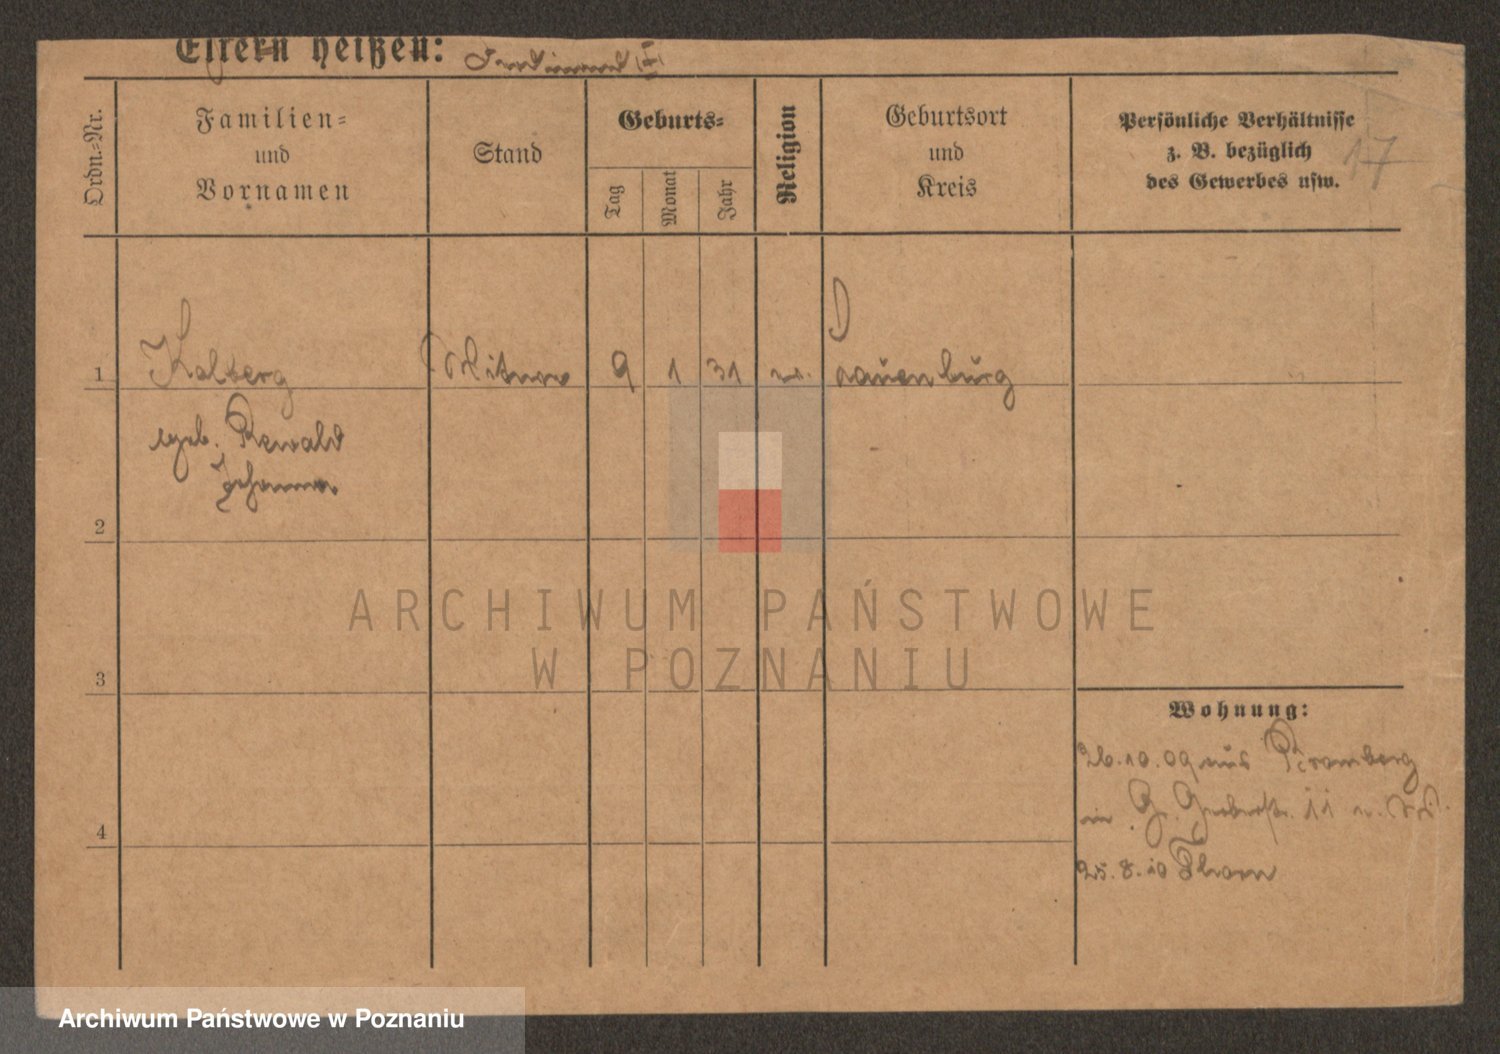 Eltern heißen: Ferdinand (†)
Ordn.-Nr.
Familien-
und
Vornamen
Stand
Geburts-
Tag
Monat
Jahr
Religion
Geburtsort
und
Kreis
Persönliche Verhältnisse
z. B. bezüglich
des Gewerbes usw.
17
1
Kalberg
Witwe
9
1
31
Lauenburg
geb. Rewald
Johanna
2
3
4
ARCHIWUM PAŃSTWOWE
W POZNANIU
Wohnung:
26.10.09 aus Bromberg
in G. 11
25.8.10 Thorn
Archiwum Państwowe w Poznaniu